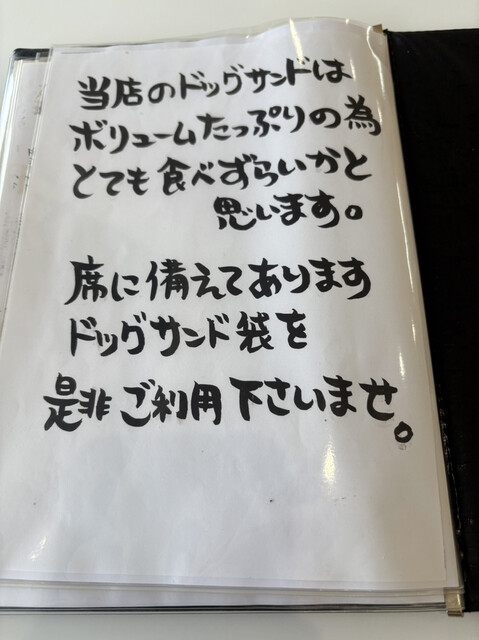 当店のドッグサンドは
ボリュームたっぷりの為
とても食べずらいかと
思います。
席に備えてあります
ドッグサンド袋を
是非ご利用下さいませ。